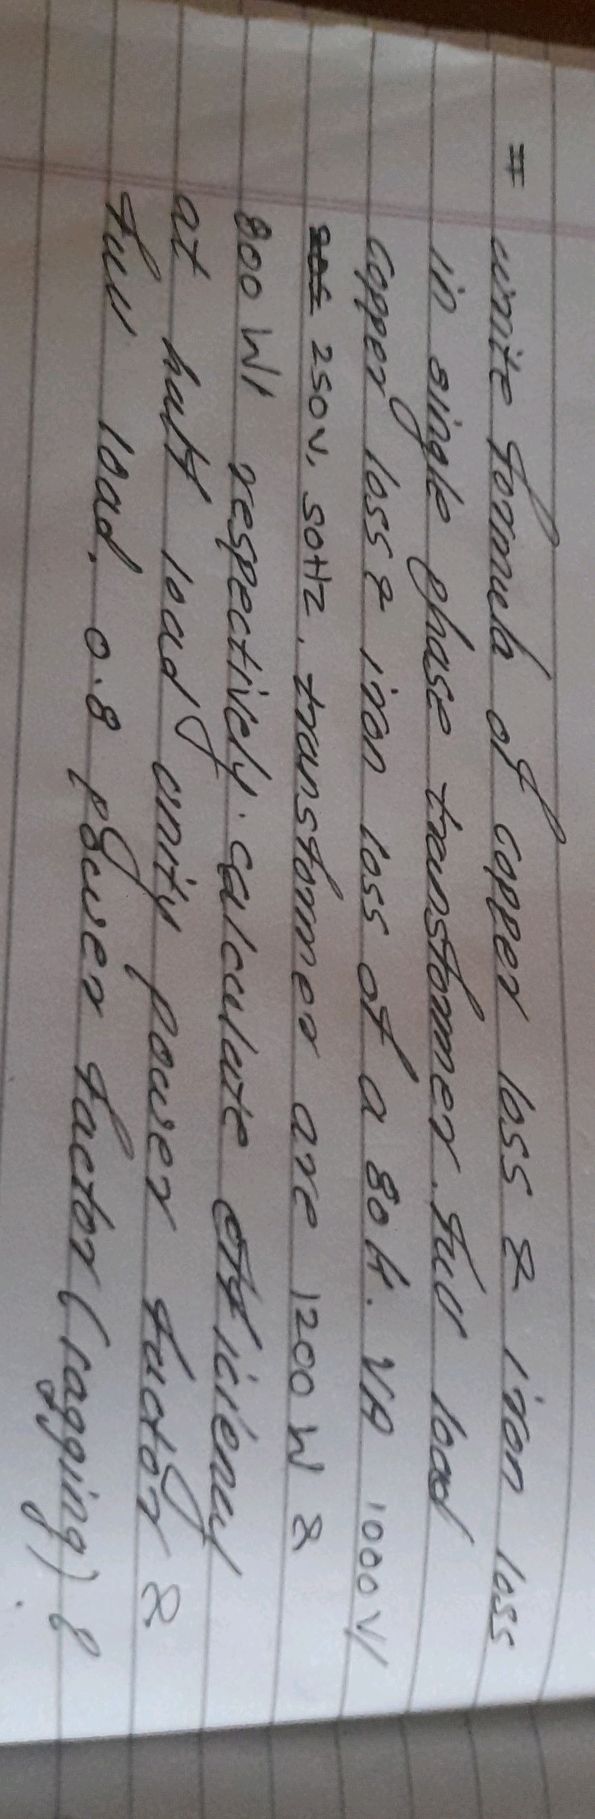 # write formula of copper loss & iron loss
in single phase transformer. full load
copper loss & iron loss of a 80 k. VA 1000 V/
250 V, 50 Hz, transformer are 1200 W &
800 W/ respectively. calculate efficiency
at half load unity power factor &
full load, 0.8 power factor (lagging) ?